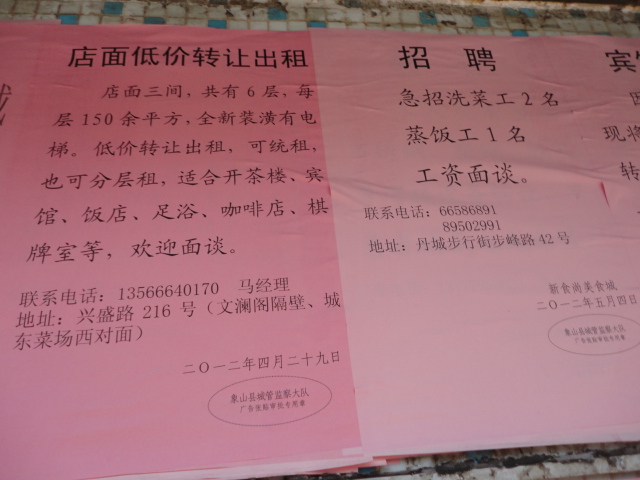 店面低价转让出租
店面三间，共有6层，每
层150余平方，全新装潢有电
梯。低价转让出租，可统租，
也可分层租，适合开茶楼、宾
馆、饭店、足浴、咖啡店、棋
牌室等，欢迎面谈。
联系电话：13566640170 马经理
地址：兴盛路 216 号（文澜阁隔壁、城
东菜场西对面）
二〇一二年四月二十九日
象山县城管监察大队
广告张贴审批专用章
招 聘
急招洗菜工2名
蒸饭工1名
工资面谈。
联系电话：66586891
89502991
地址：丹城步行街步峰路 42 号
新食尚美食城
二〇一二年五月四日
象山县城管监察大队
广告张贴审批专用章
宾
现将
转